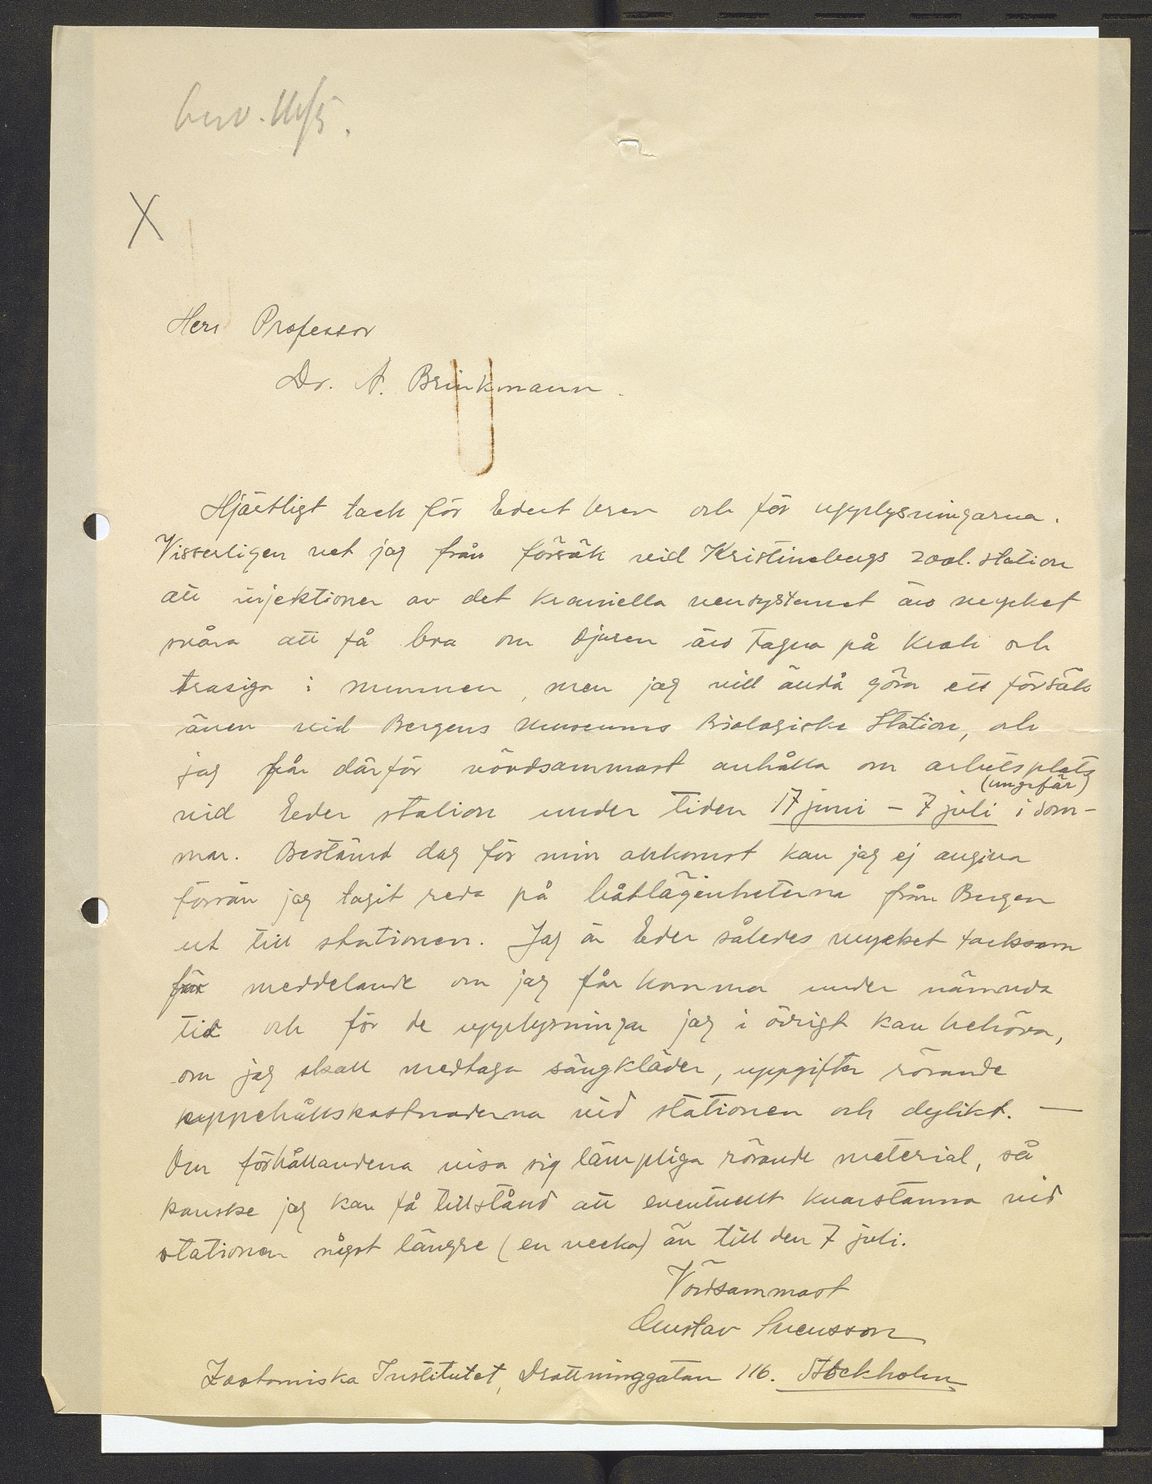 besv. 16/5.
X
Herr Professor
Dr. A. Brinkmann.
Hjärtligt tack för Edert brev och för upplysningarna.
Visserligen vet jag från försök vid Kristinebergs zool. station
att injektioner av det kraniella vensystemet äro mycket
svåra att få bra om djuren äro tagna på krok och
trasiga i munnen, men jag vill ändå göra ett försök
även vid Bergens Museums Biologiske Station, och
jag får därför vördsammast anhålla om arbetsplats
vid Eder station under tiden 17 juni – 7 juli (ungefär) i som-
mar. Bestämd dag för min ankomst kan jag ej angiva
förrän jag tagit reda på båtlägenheterna från Bergen
ut till stationen. Jag är Eder således mycket tacksam
för meddelande om jag får komma under nämnda
tid och för de upplysningar jag i övrigt kan behöva,
om jag skall medtaga sängkläder, uppgifter rörande
uppehållskostnaderna vid stationen och dylikt. —
Om förhållandena visa sig lämpliga rörande material, så
kanske jag kan få tillstånd att eventuellt kvarstanna vid
stationen något längre (en vecka) än till den 7 juli.
Vördsammast
Gustav Svensson
Zootomiska Institutet, Drottninggatan 116. Stockholm